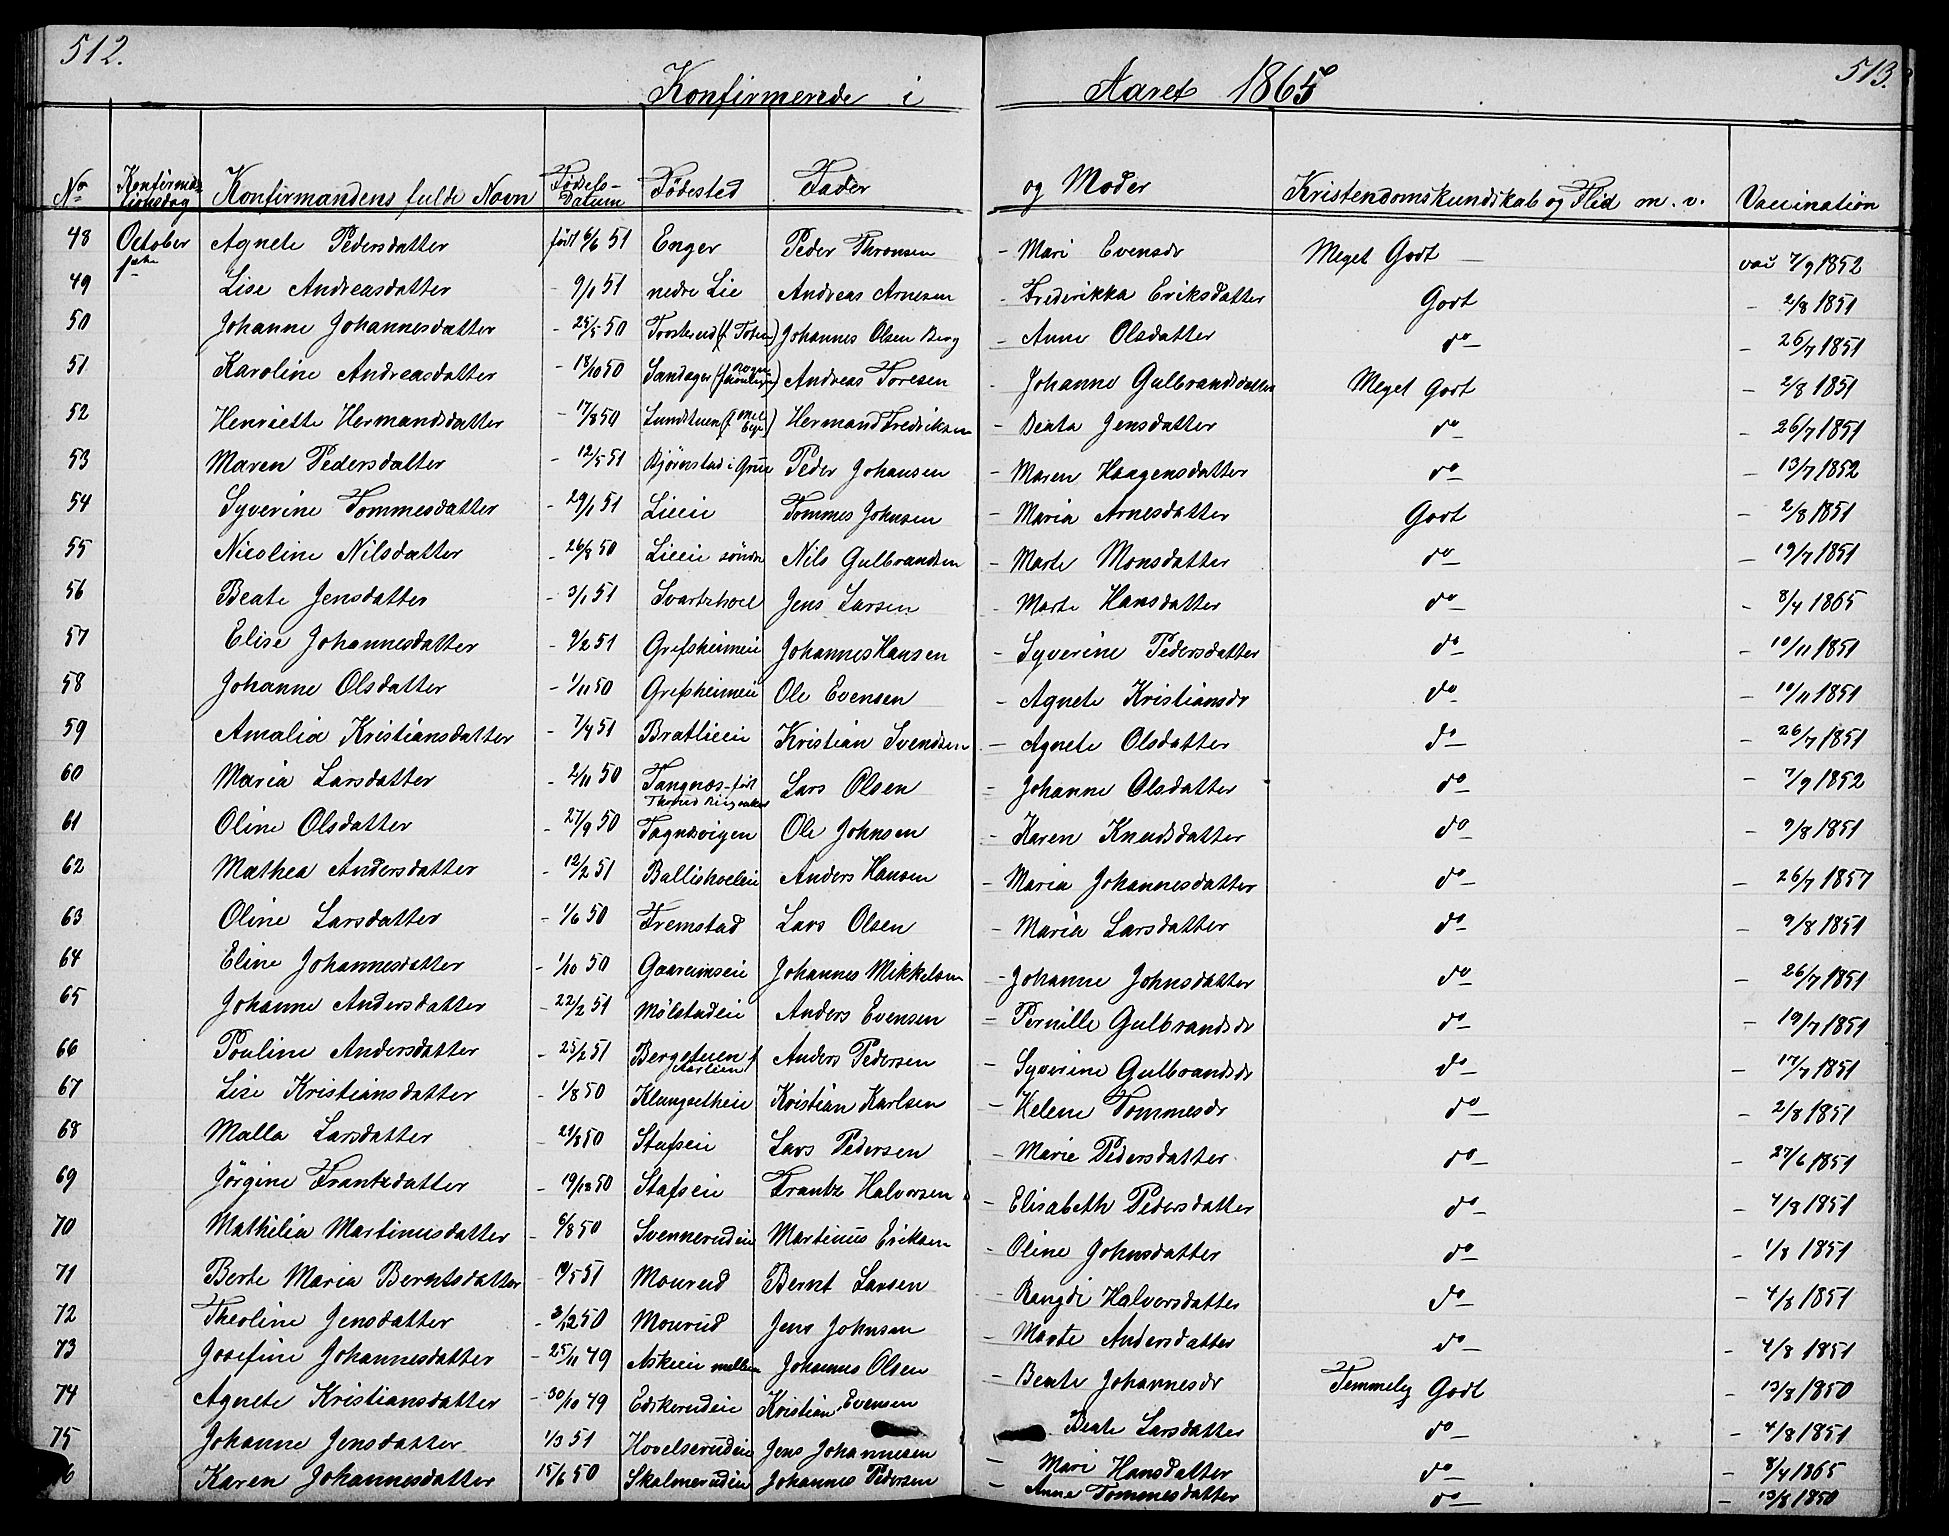 512.
513.
Konfirmerede i Aaret 1865
No Konfirmationsdag Konfirmandens fulde Navn Fødels-Datum Fødested Fader og Moder Kristendomskundskab og Flid m. v. Vaccination
48 October 1ste Agnete Pedersdatter født 6/6 51 Enger Peder Thronsen - Mari Evensdr Meget Godt vac 7/9 1852
49 Lise Andreasdatter - 9/1 51 nedre Lie Andreas Arnesen - Frederikka Eriksdatter Godt - 2/8 1851
50 Johanne Johannesdatter - 25/5 50 (f. Toten) Johannes Olsen Berg - Anne Olsdatter do - 26/7 1851
51 Karoline Andreasdatter - 18/10 50 Sandager Andreas Toresen - Johanne Gulbrandsdatter Meget Godt - 2/8 1851
52 Henriette Hermandsdatter - 17/8 50 Lundtuen Hermand Fredriksen - Beata Jensdatter do - 26/7 1851
53 Maren Pedersdatter - 12/5 51 Bjørnstad i Grue Peder Johansen - Maren Haagensdatter do - 13/7 1852
54 Syverine Tommesdatter - 29/1 51 Lieeie Tommes Johnsen - Maria Arnesdatter Godt - 2/8 1851
55 Nicoline Nilsdatter - 26/8 50 Lieeie søndre Nils Gulbrandsen - Marte Monsdatter do - 19/7 1851
56 Beate Jensdatter - 3/1 51 Svartshoel Jens Larsen - Marte Hansdatter do - 8/4 1865
57 Elise Johannesdatter - 9/2 51 Grefsheimeie Johannes Hansen - Syverine Pedersdatter do - 10/11 1851
58 Johanne Olsdatter - 1/11 50 Grefsheimeie Ole Evensen - Agnete Kristiansdr do - 10/11 1851
59 Amalia Kristiansdatter - 7/4 51 Bratlieeie Kristian Svendsen - Agnete Olsdatter do - 26/7 1851
60 Maria Larsdatter - 2/11 50 Tangnæs født Ringsaker Lars Olsen - Johanne Olsdatter do - 7/9 1852
61 Oline Olsdatter - 27/9 50 Tagnæsvigen Ole Johnsen - Karen Knudsdatter do - 9/8 1851
62 Mathea Andersdatter - 12/2 51 Ballishoeleie Anders Hansen - Maria Johannesdatter do - 26/7 1857
63 Oline Larsdatter - 1/6 50 Fremstad Lars Olsen - Maria Larsdatter do - 9/8 1851
64 Eline Johannesdatter - 1/10 50 Gaareimseie Johannes Mikkelsen - Johanne Johnsdatter do - 26/7 1851
65 Johanne Andersdatter - 22/2 51 Mølstadeie Anders Evensen - Pernille Gulbrandsdr do - 19/7 1851
66 Pouline Andersdatter - 25/2 51 Bergetuen Anders Pedersen - Syverine Gulbrandsdr do - 17/7 1851
67 Lise Kristiansdatter - 1/8 50 Klungsetheie Kristian Karlsen - Helene Tommesdr do - 2/8 1851
68 Malla Larsdatter - 21/8 50 Stafseie Lars Pedersen - Marie Pedersdatter do - 27/6 1851
69 Jørgine Frantzdatter - 19/ 50 Stafseie Frantz Halvorsen - Elisabeth Pedersdatter do - 4/8 1851
70 Mathilia Martinusdatter - 6/8 50 Svennerudeie Martinus Eriksen - Oline Johnsdatter do - 1/8 1851
71 Berte Maria Berntsdatter - /5 51 Mourud Bernt Larsen - Rangdi Halvorsdatter do - 4/8 1851
72 Theoline Jensdatter - 3/12 50 Mourud Jens Johnsen - Marte Andersdatter do - 4/8 1851
73 Josefine Johannesdatter - 25/11 49 Askeeie mellem Johannes Olsen - Beate Johannesdr Temmelig Godt - 13/8 1850
74 Agnete Kristiansdatter - 30/10 49 Edskerudeie Kristian Evensen Beate Larsdatter do - 4/8 1851
75 Johanne Jensdatter 1/3 51 Hovelserudeie Jens Johannesen - Mari Hansdatter do - 8/4 1865
6 Karen Johannesdatter 15/6 50 Skalmerudeie Johannes Pedersen - Anne Tommesdatter do - 13/8 1850